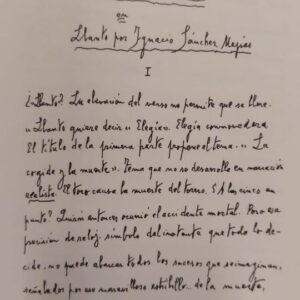 en
Llanto por Ignacio Sánchez Mejías
I
¿«Llanto»? La elevación del verso no permite que se llore.
«Llanto quiere decir «Elegía». Elegía conmovedora.
El título de la primera parte propone el tema: «La
cogida y la muerte». Tema que no se desarrolla en narración
realista. El toro causa la muerte del torero. ¿A las cinco en
punto? Quizá entonces ocurrió el accidente mortal. Pero esa
precisión de reloj, símbolo del instante que todo lo de-
cide, no puede abarcar todos los sucesos que se imaginan,
señalados por ese maravilloso estribillo... de la muerte.